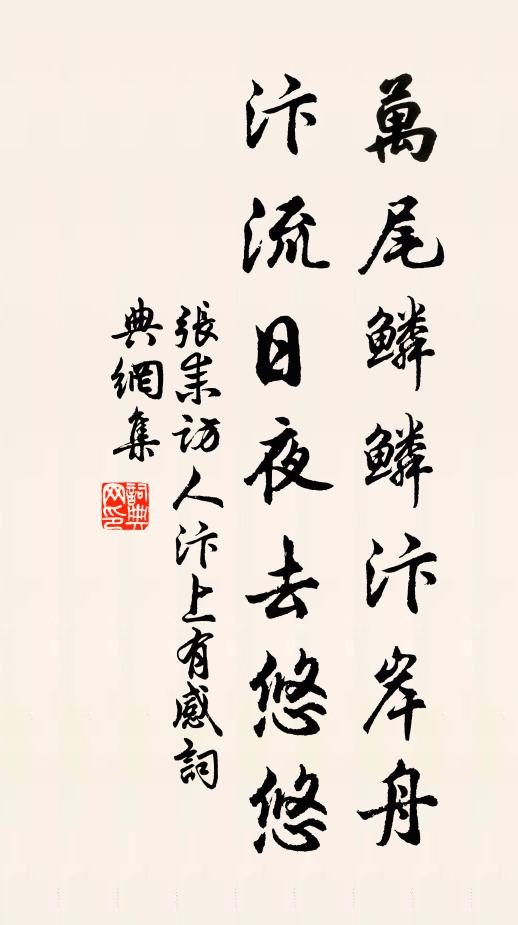 萬尾鱗鱗汴岸舟
汴流日夜去悠悠
張耒訪人汴上有感詞
典網集
詞典网印